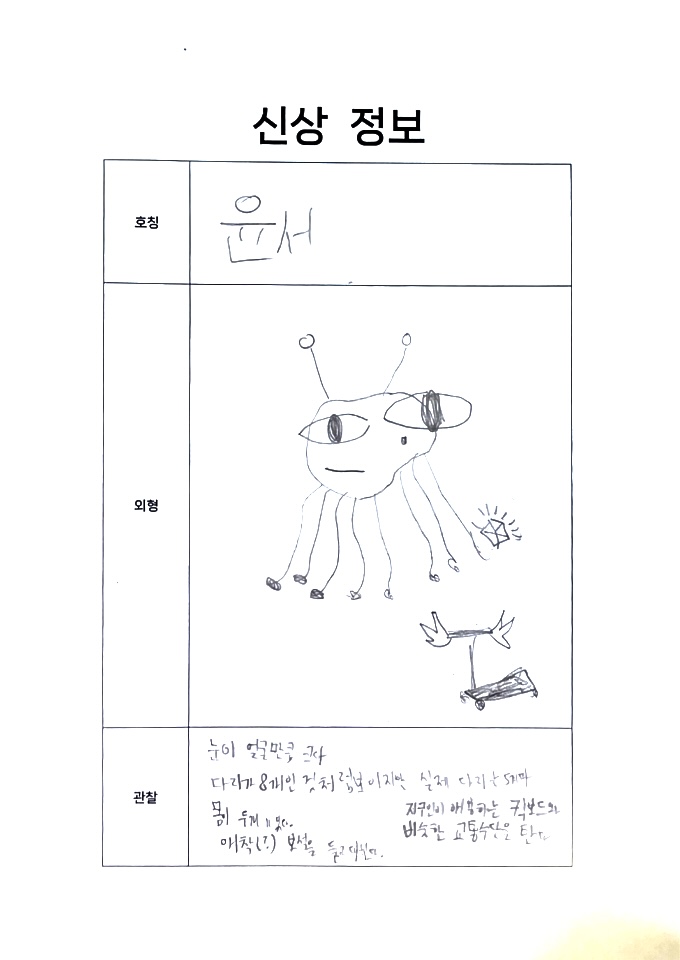 신상 정보
호칭
윤서
외형
관찰
눈이 얼굴만큼 크다
다리가 8개인 것처럼 보이지만 실제 다리는 5개다
몸이 두개
애착(?) 보석을 들고 다닌다.
지구인이 애용하는 킥보드와
비슷한 교통수단을 탄다